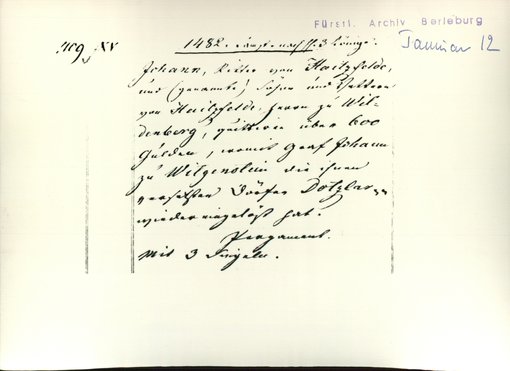 Fürstl. Archiv Berleburg
1482. nach 3 Könige.
Januar 12
Johann, Ritter von Hatzfelde,
und (genannte) Söhne und Vettern
von Hatzfelde, Herrn zu Wil-
denberg, quittiren über 600
Gulden, womit Graf Johann
zu Witgenstein die ihnen
versetzten Dörfer Dotzlar
wiedereingelöst hat.
Pergament.
Mit 3 Siegeln.